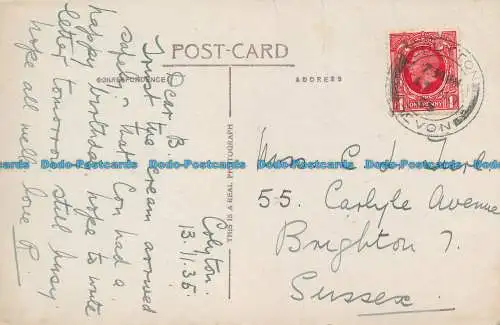 POST-CARD
CORRESPONDENCE
ADDRESS
THIS IS A REAL PHOTOGRAPH
ONE PENNY
DEVON
Colyton.
13.11.35.
Dear B.
Trust the cream arrived
safely & that Con had a
happy birthday, hope to write
letter tomorrow still busy
hope all well love R.
Miss E J
55. Carlyle Avenue
Brighton 7.
Sussex.
Dodo-Postcards Dodo-Postcards Dodo-Postcards Dodo-Postcards Dodo-Postcards Dodo-Postcards